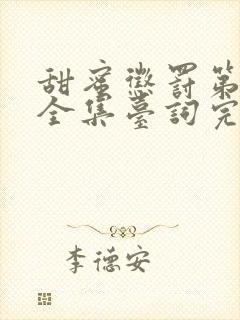 甜蜜懲罰第
全集臺詞完
李德安